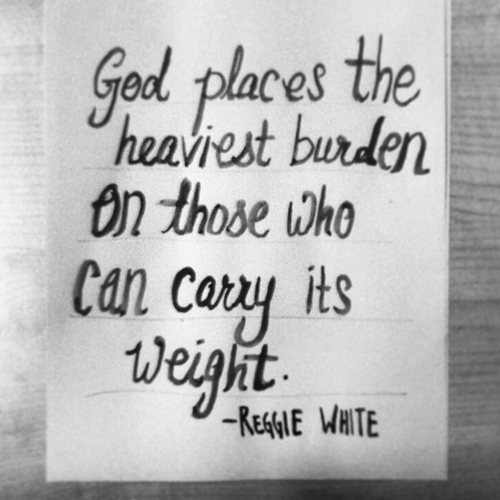 God places the
heaviest burden
on those who
can carry its
weight.
-REGGIE WHITE